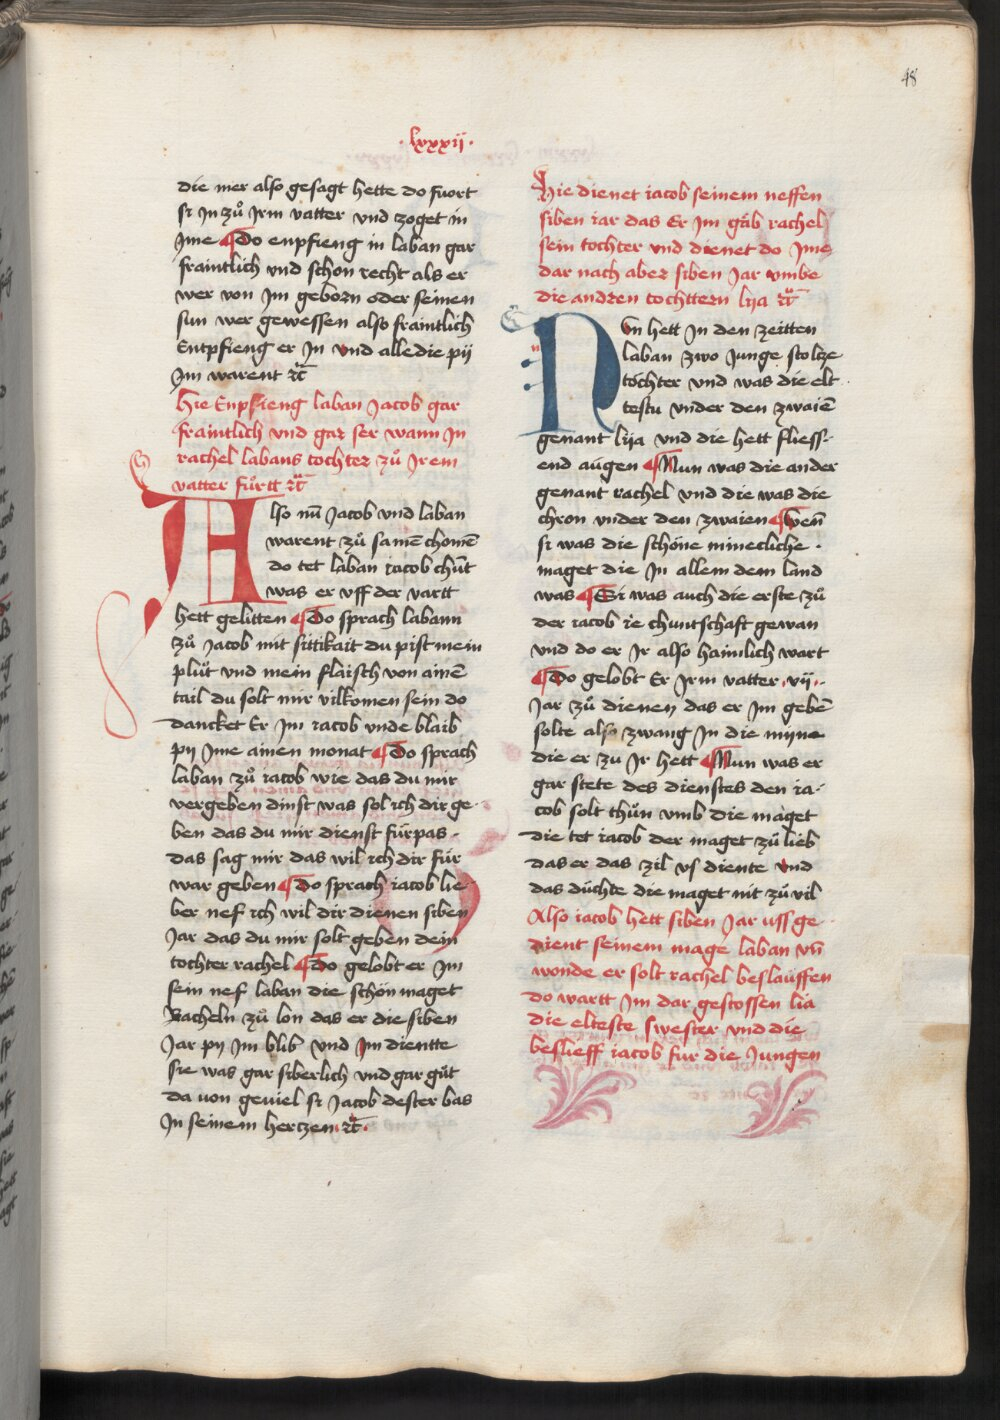 48
· lxxxij ·
die mer also gesagt hette do fuort
si Jn zuͦ Jrm vatter vnd zoget in
Jme ¶Do enpfieng in laban gar
fraintlich vnd schon recht als er
wer von Jm geborn oder seinen
sun wer gewessen also fraintlich
Entpfieng er Jn vnd alle die pij
Jm warent ꝛc̃
Hie Enpfieng laban Jacob gar
fraintlich vnd gar ser wann Jn
rachel labans tochter zuͦ Jrem
vatter fuͤrtt ꝛc̃
Also nū Jacob vnd laban
warent zuͦ samē chomē
do tet laban iacob chūt
was er vff der vartt
hett gelitten ¶Do sprach labann
zuͦ Jacob mit sittikait du pist mein
pluͤt vnd mein flaisch von ainē
tail du solt mir vilkomen sein do
dancket Er Jm iacob vnde blaib
pij Jme ainen monat ¶Do sprach
laban zuͦ iacob wie das du mir
vergeben dinst was sol ich dir ge-
ben das du mir dienst fuͤrpas -
das sag mir das wil ich dir fuͤr
war geben ¶Do sprach iacob lie-
ber nef ich wil dir dienen siben
Jar das du mir solt geben dein
tochter rachel ¶Do gelobt er Jm
sein nef laban die schön maget
Racheln zuͦ lon das er die siben
Jar pij Jm blib vnd Jm dientte
sie was gar siberlich vnd gar guͤt
da von geviel si Jacob dester bas
Jn seinem hertzen ꝛc̃ ·
Hie dienet iacob seinem neffen
siben iar das Er Jm gäb rachel
sein tochter vnd dienet do Jme
dar nach aber siben Jar vmbe
die andren tochttern lija ꝛc̃
n
NVn hett Jn den zeitten
laban zwo Junge stolcze
töchter vnd was die elt
testu vnder den zwaiē
genant lija vnd die hett fliess-
end augen ¶Nun was die ander
genant rachel vnd die was die
chron vnder den zwaien ¶wen̄
si was die schöne minecliche ·
maget die Jn allem dem land
was ¶Si was auch die erste zuͦ
der iacob ie chuntschaft gewan
vnd do er Jr also haimlich wart
¶Do gelobt Er Jrm vatter · vij ·
Jar zuͦ dienen das er Jm gebē
solte also zwang Jn die mijne
die er zu Jr hett ¶Nun was er
gar stete des dienstes den ia-
cob solt thuͤn vmb die maget
die tet iacob der maget zuͦ lieb
das er das zil vs diente vnd
das duͤchte die maget nit zuͦ vil
Also iacob hett siben Jar uss ge
dient seinem mage laban vn̄
wonde er solt rachel beslauffen
do wartt Jm dar gestossen lia
die elteste swester vnd die
beslieff iacob fur die Jungen